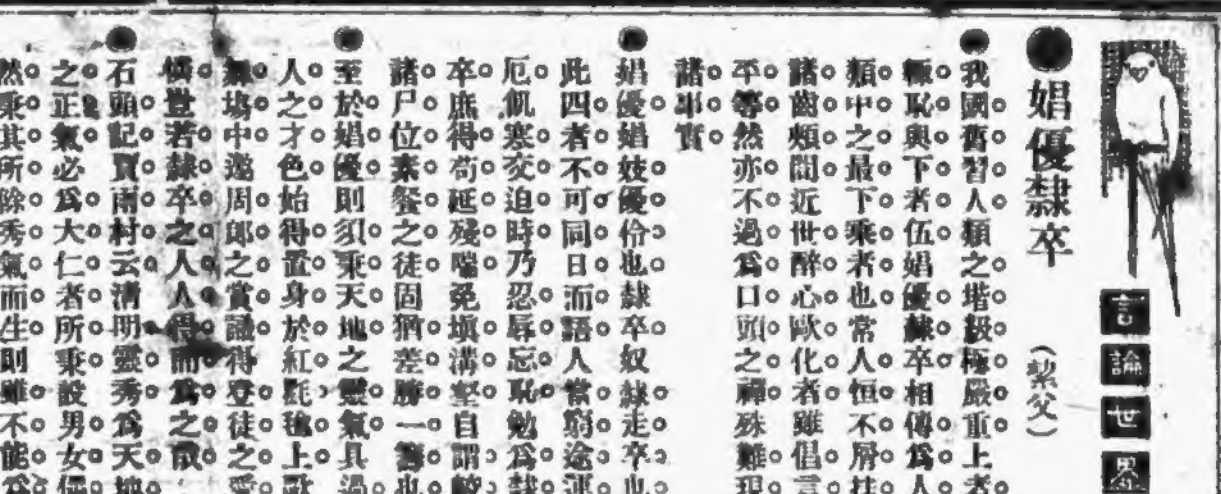 言論世界
●娼優隸卒 (絜父)
●我國舊習人類之堦級極嚴重上者
極恥與下者伍娼優隸卒相傳爲人
類中之最下乘者也常人恒不屑挂
諸齒頰間近世醉心歐化者雖倡言
平等然亦不過爲口頭之禪殊難現
諸事實
●娼優娼妓優伶也隸卒奴隸走卒也
此四者不可同日而語人當窮途運
厄飢寒交迫時乃忍辱忘恥勉爲隸
卒庶得苟延殘喘免塡溝壑自謂較
諸尸位素餐之徒固猶差勝一籌也
●至於娼優則須秉天地之靈氣具過
人之才色始得置身於紅氍毹上歌
塲中邀周郎之賞識得登徒之愛
憐豈若隸卒之人人得而爲之
●石頭記賈雨村云淸明靈秀爲天地
之正氣必爲大仁者所秉設男女偶
然秉其所餘秀氣而生則雖不能爲